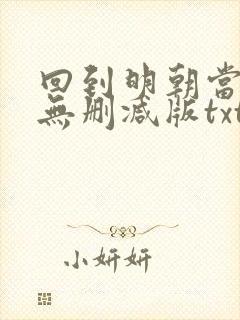 回到明朝當
無刪減版txt
小妍妍